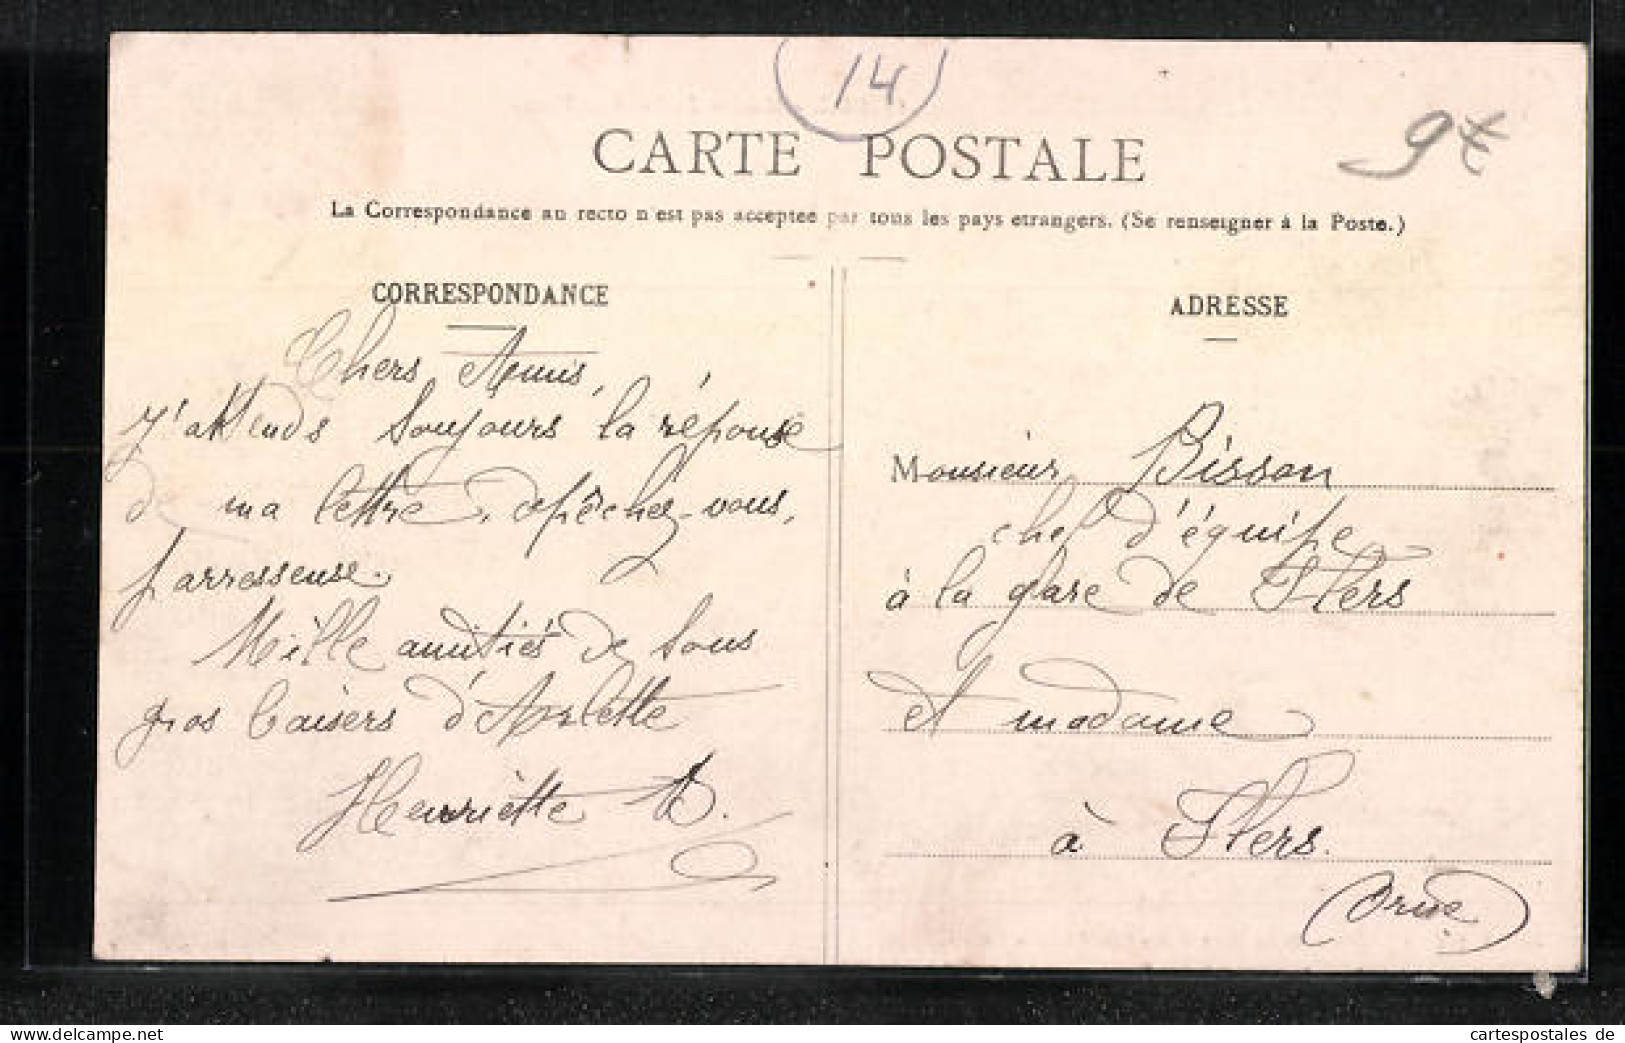 14
9t
CARTE POSTALE
La Correspondance au recto n'est pas acceptee par tous les pays etrangers. (Se renseigner à la Poste.)
CORRESPONDANCE
Chers Amis,
J'attends toujours la réponse
de ma lettre, dépêchez-vous,
parresseuse.
Mille amitiés de tous
gros baisers d'Arlette
Henriette D.
ADRESSE
Monsieur Bisson
chef d'équipe
à la gare de Flers
et madame
à Flers.
(Orne)
cartespostales de
www.delcampe.net